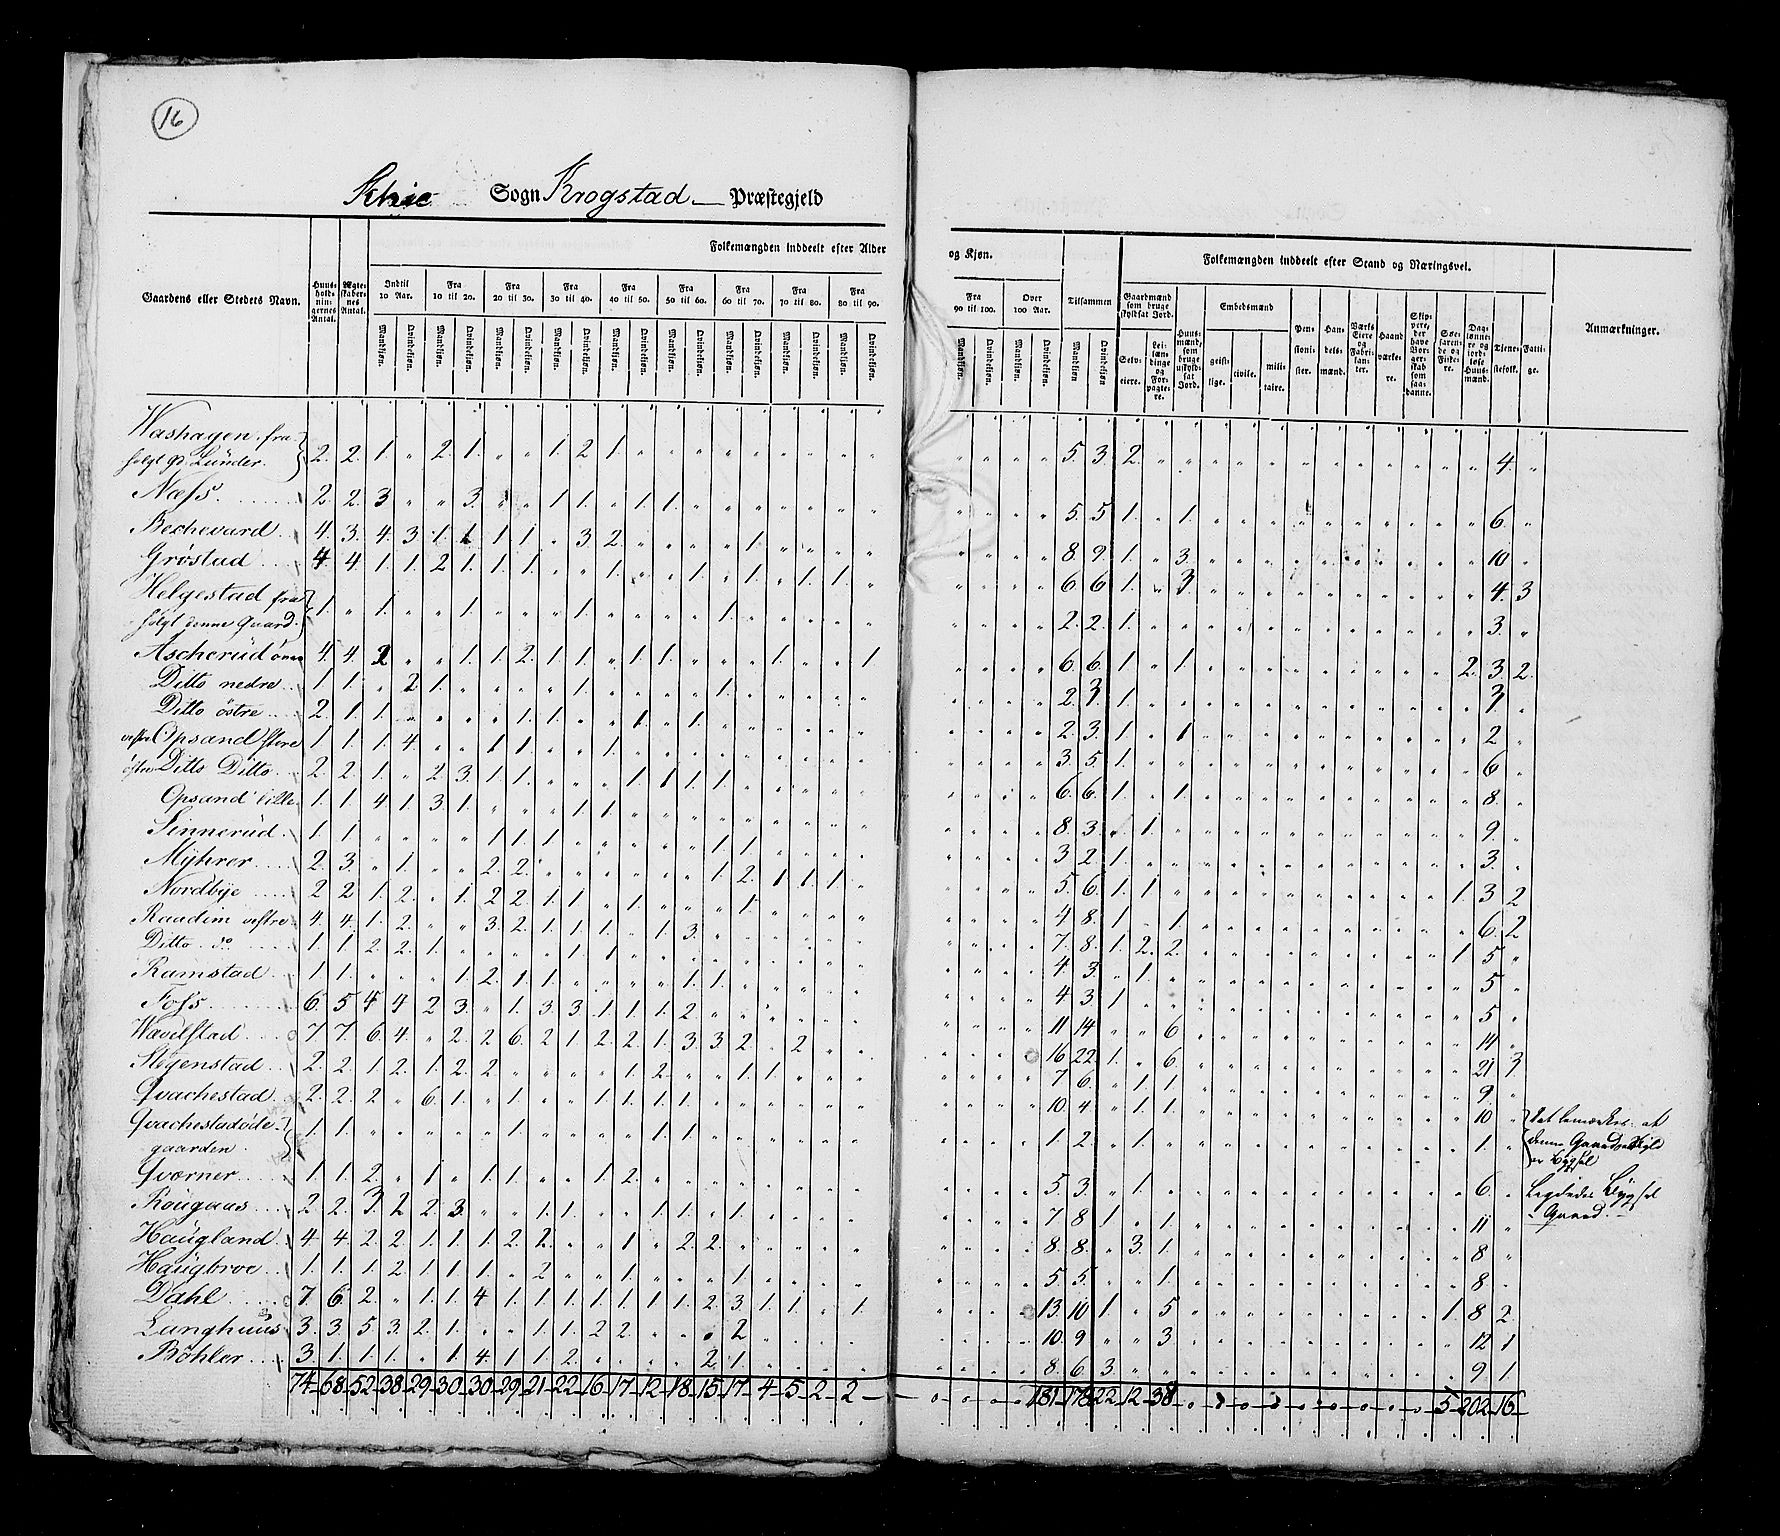 16
Schie Sogn Krogstad Præstegjeld
Gaardens eller Stedets Navn.
Huus-holdnin-gernes Antal.
Ægte-skaber-nes Antal.
Folkemængden inddeelt efter Alder
og Kjøn.
Indtil 10 Aar.
Fra 10 til 20.
Fra 20 til 30.
Fra 30 til 40.
Fra 40 til 50.
Fra 50 til 60.
Fra 60 til 70.
Fra 70 til 80.
Fra 80 til 90.
Fra 90 til 100.
Over 100 Aar.
Tilsammen
Mandkjøn. Qvindekjøn.
Folkemængden inddeelt efter Stand og Næringsvei.
Gaardmænd som bruge skyldsat Jord.
Selv-eiere.
Lei-læn-dinge og For-pagte-re.
Huus-mænd, som bruge uskyld-sat Jord.
Embedsmænd
geist-lige.
civile.
mili-taire.
Pen-sioni-ster.
Han-dels-mænd.
Værks Eiere og Fabri-kan-ter.
Haand værke-re.
Skip-pere, der have Bor-ger-skab som saa-danne.
Søe-faren-de og Fiske-re.
Dag-lønne-re og jord-løse Huus-mænd.
Tjene-stefolk.
Fatti-ge.
Anmærkninger.
Washagen fra-
solgt P. Lunder. 2. 2. 1. " 2. 1. " " 1. 2. 1. 5. 3. 2. 4.
Næss 2. 2. 3 " " 3. " " 1. 1. " 1. 1. 5. 5. 1. " 1. 6.
Bechevard 4. 3. 4. 3. 1. 1. 1. 1. " 3. 2. " " " " 1. 8. 9. 1. " 3. 10.
Grøstad 4. 4. 1. 1. 2. 1. 1. 1. " " 1. " " 1. " 1. " 1. 1. 6. 6. 1. " 3. 4. 3
Helgestad fra
solgt denne Gaard 1. " 1. " " 1. " " " 1. " " " " 1. 2. 2. 1. 3.
Ascherud 4. 4. 2 " " 1. 1. 2. 1. 1. " 1. 1. " " " 1. " " 1 6. 6. 1. " 1. 2. 3. 2.
Ditto nedre 1. 1. " 2. 1. " " " " 1. " " " " 1. 2. 3. 1. 3.
Ditto östre 2. 1. 1. " " " " 1. 1. " " 1. " 1. 2. 3. 1. " 1 2
vestre Opsand Store 1. 1. 1. 4. " " 1 1. " " 1. 3. 5. 1. 6
östre Ditto Ditto 2. 2. 1. " 2. 3. 1. 1. " " " 1. 1. 1. 1. 6. 6. 1. " 1. 8.
Opsand lille 1. 1. 4. 1. 3. 1. " " " 1. 1. 8. 3. " 1. 9.
Sinnerud 1. 1. " " " " 1. 1. 1. " " " " " 1. 1. 3. 2. 1. 3.
Mÿhrer 2. 3. " 1. " " 2. 2. " " " " " " 1. 2. 1. 1. 1. 5. 6. 1. 1. 1. 3 2
Nordbye 2. 2. 1. 2. " 1. 2. 2. 1. 1. " 1. " " " 1. 4 8. 1. " 1. 6. 2
Raadim vestre 4. 4. 1. 2. " " 3. 2. 1. 1. 1. " 1. 3. 7. 8. 1. 2. 2. 1 5
Ditto do 1. 1. 2. 2. 1. " " " " 1. 1. 4. 3. " 1. 5
Ramstad 1. 1. " " " 1. 2. 1. 1. " " " " 1. 1. 4. 3. 1. 5.
Foss 6. 5. 4 4 2 3. " 1. 3. 3. 1. 1. 1. 2. 11. 14. " " 6 14
Wævelstad 7. 7. 6. 4. " 2. 2. 6. 2. 1. 2. 2. 1. 3. 3. 2. " 2. 16. 22. 1. " 6. 21 3
Stegenstad 2. 2. 1. 2. 1. 2. 2. " " " " 1. 2. " " 1. 1. 7. 6. " 1. 1. 9.
Qvachestad 2. 2. 2. " 6. 1. " 1. " " 1. 1. 1. 1. 10. 4. " 1. 1. 10
Qvachestadøde-
gaarden 1. 1. " " " " " 1. " " " " 1. 1. 1. 2. " 1. 1. Det bemærkes at
denne Gaards
er Bygsel
Qværner 1. 1. 2. " 1. " 1. " " " 1. 2. 5. 3. " 1. 6. Bygsel
Gaard.
Rougaas 2. 2. 3. 2. 2. 3. " " 1. 1. " " 1. 1. " 1. 7. 8. 1. " 1. 11
Haugland 4. 4. 2. 2. 1. 1. 1. 2. 2. " " 1 " 2. 2. 8. 8. " 3. 1. 8
Haugbroe 1. 1. 1. 2. 1. 1. 1. " 2. " " 1. " " " 1. 5. 5. " " 1. 8.
Dahl 7. 6. 2. " 1. 1. 4. 1. 1. 1. 1. 1. 1. 1. 2. 3. 1. 1. " 1. 13. 10. 1. " 5. 1. 8. 2.
Langhuus 3. 3. 5. 3. 2. 1. " " 1. 1. 2. 2. " " " 2. 10. 9. " " 3. 12. 1
Bøhler 3. 1. 1. 1. " 1. 4. 1. 1. 2. " " " " 2. 1. 8. 6. 3. 9. 1
74 68 52 38 29 30 30 29 21 22 16 17 12 18 15 17 4 5 2 2 181 178 22 12 38 5 202 16